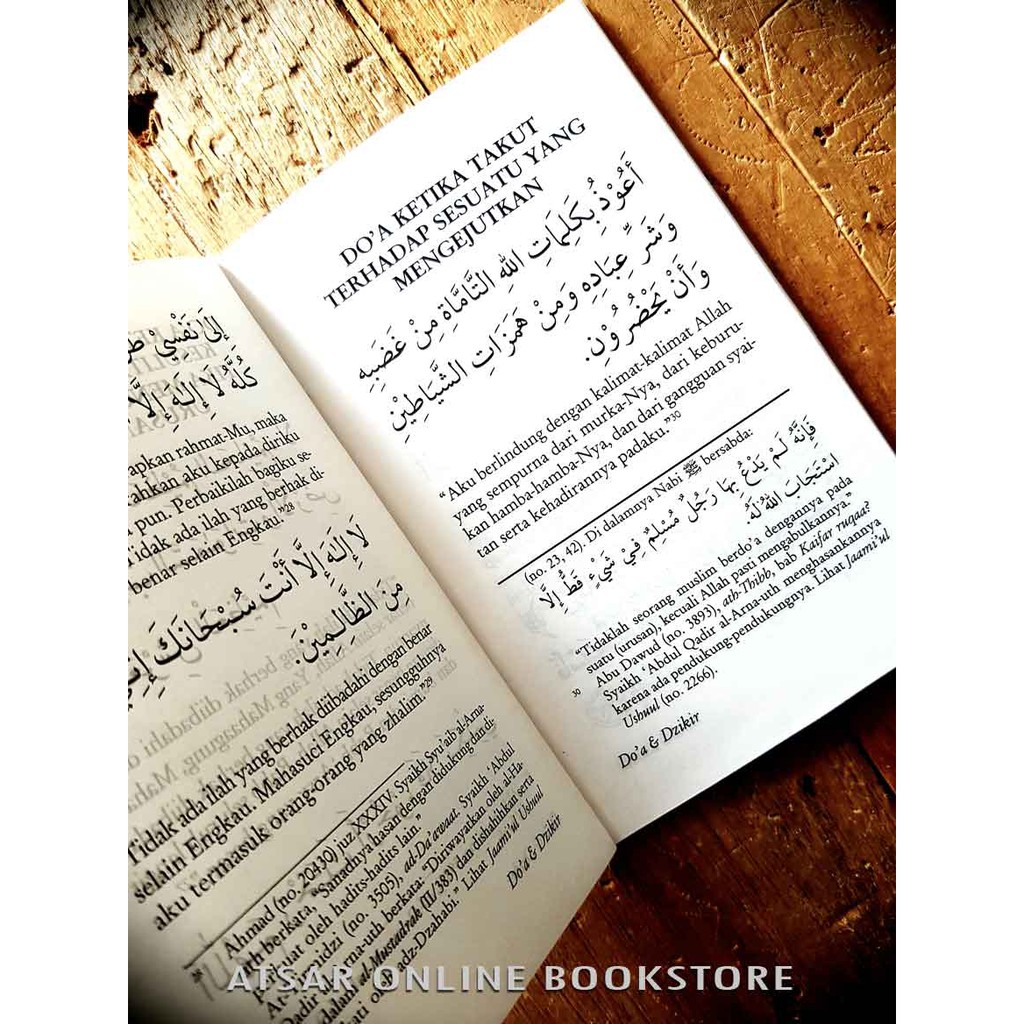 إِلَى نَفْسِيْ
كُلَّهُ لَا إِلَهَ إِلَّا
apkan rahmat-Mu, maka
ahkan aku kepada diriku
pun. Perbaikilah bagiku se-
Tidak ada ilah yang berhak di-
benar selain Engkau."28
لَا إِلَهَ إِلَّا أَنْتَ سُبْحَانَكَ
مِنَ الظَّالِمِيْنَ.
Tidak ada ilah yang berhak diibadahi dengan benar
selain Engkau. Mahasuci Engkau, sesungguhnya
aku termasuk orang-orang yang zhalim."29
Ahmad (no. 20430) juz XXXIV. Syaikh Syu'aib al-Arna-
uth berkata, "Sanadnya hasan dengan didukung dan di-
perkuat oleh hadits-hadits lain."
At-Tirmidzi (no. 3505), ad-Da'awaat. Syaikh 'Abdul
Qadir al-Arna-uth berkata: "Diriwayatkan oleh al-Ha-
dalam al-Mustadrak (II/383) dan dishahihkan serta
adz-Dzahabi." Lihat Jaami'ul Ushuul
Do'a & Dzikir
DO'A KETIKA TAKUT
TERHADAP SESUATU YANG
MENGEJUTKAN
أَعُوْذُ بِكَلِمَاتِ اللهِ التَّامَّاةِ مِنْ غَضَبِهِ
وَشَرِّ عِبَادِهِ وَمِنْ هَمَزَاتِ الشَّيَاطِيْنِ
وَأَنْ يَحْضُرُوْنِ.
"Aku berlindung dengan kalimat-kalimat Allah
yang sempurna dari murka-Nya, dari keburu-
kan hamba-hamba-Nya, dan dari gangguan syai-
tan serta kehadirannya padaku."30
(no. 23, 42). Di dalamnya Nabi ﷺ bersabda:
فَإِنَّهُ لَمْ يَدْعُ بِهَا رَجُلٌ مُسْلِمٌ فِيْ شَيْءٍ قَطُّ إِلَّا
اسْتَجَابَ اللهُ لَهُ.
"Tidaklah seorang muslim berdo'a dengannya pada
suatu (urusan), kecuali Allah pasti mengabulkannya."
30 Abu Dawud (no. 3893), ath-Thibb, bab Kaifar ruqaa?
Syaikh 'Abdul Qadir al-Arna-uth menghasankannya
karena ada pendukung-pendukungnya. Lihat Jaami'ul
Ushuul (no. 2266).
Do'a & Dzikir
ATSAR ONLINE BOOKSTORE